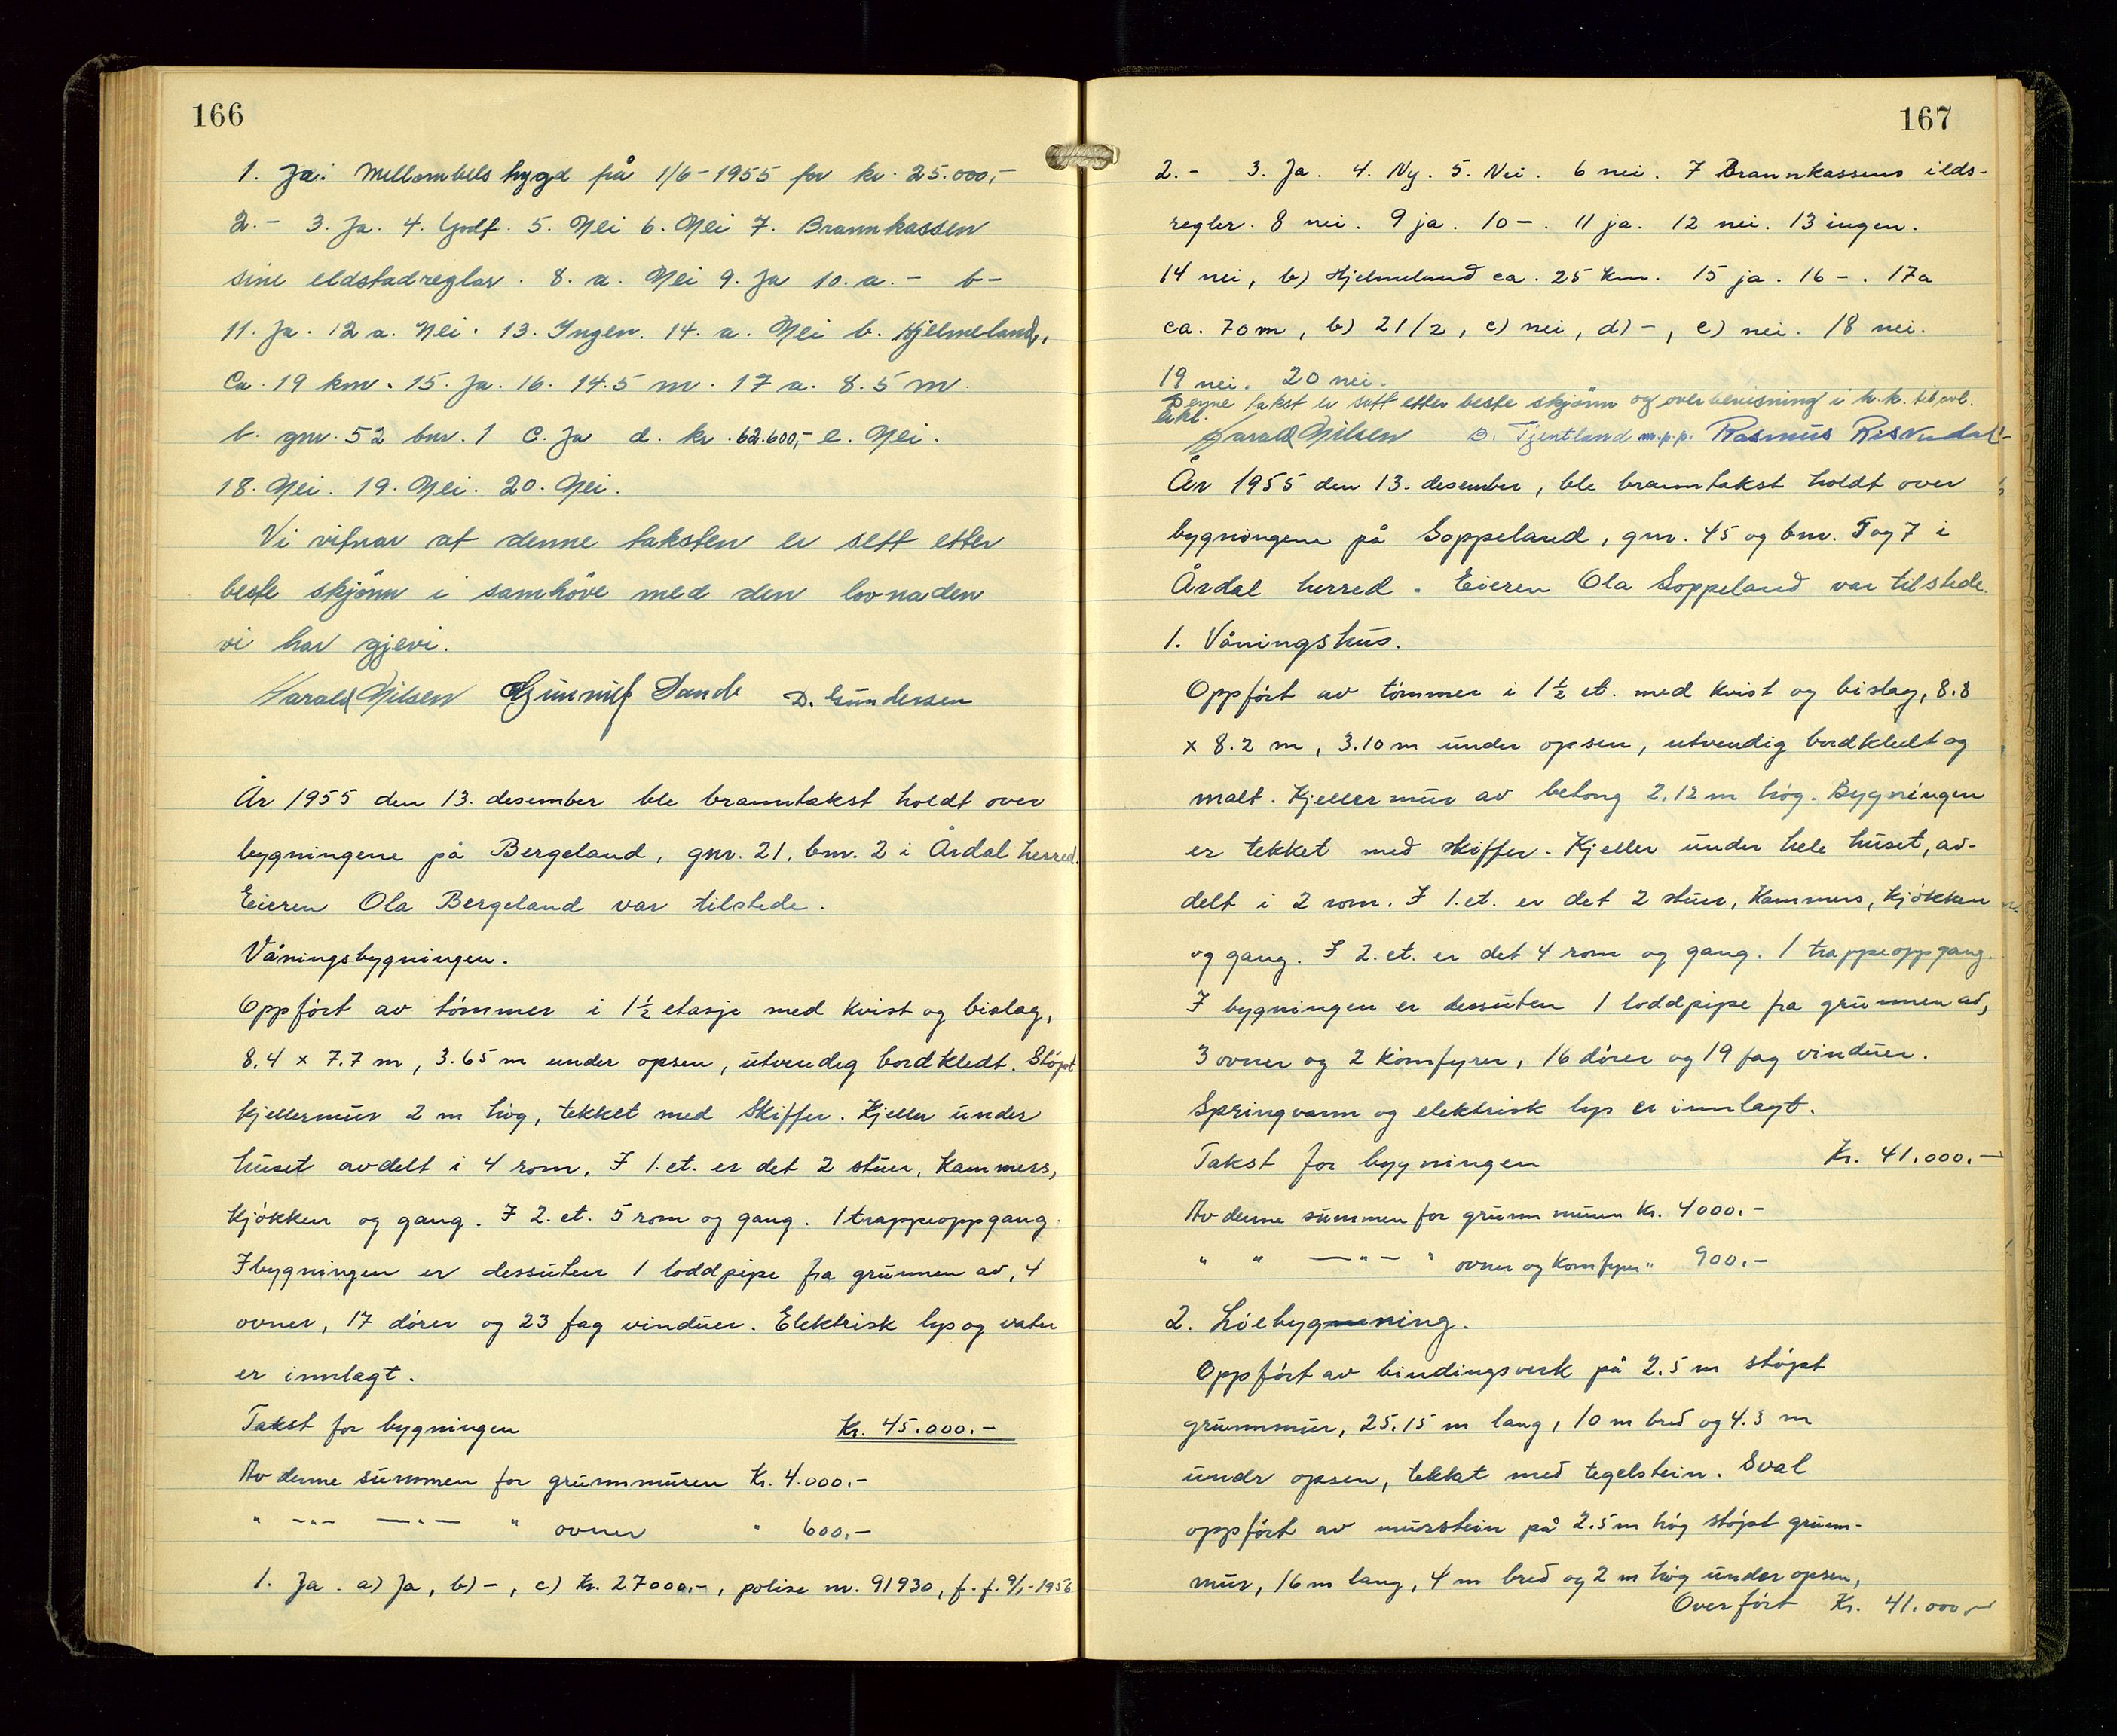 166
1. Ja. Mellombels trygd på 1/6-1955 for kr. 25.000,-
2.- 3. Ja. 4. Godt. 5. Nei 6. Nei 7. Brannkassen
sine eldstadreglar. 8. a. Nei 9. Ja 10. a. - b-
11. Ja. 12 a. Nei. 13. Ingen. 14. a. Nei b. Hjelmeland,
Ca. 19 km. 15. Ja. 16. 14.5 m. 17 a. 8.5 m.
b. gnr. 52 bnr. 1 c. Ja d. kr. 62.600,- e. Nei.
18. Nei. 19. Nei. 20. Nei.
Vi vitnar at denne taksten er sett etter
beste skjönn i samhöve med den lovnaden
vi har gjevi.
Harald Nilsen Gunnulf Sande D. Gundersen
År 1955 den 13. desember ble branntakst holdt over
bygningene på Bergeland, gnr. 21, bnr. 2 i Årdal herred.
Eieren Ola Bergeland var tilstede.
Våningsbygningen.
Oppfórt av tómmer i 1½ etasje med kvist og bislag,
8.4 x 7.7 m, 3.65 m under opsen, utvendig bordkledt. Stópt
kjellermur 2 m hóg, tekket med Skiffer. Kjeller under
huset avdelt i 4 rom. I 1. et. er det 2 stuer, kammers,
kjókken og gang. I 2. et. 5 rom og gang. 1 trappeoppgang.
I bygningen er dessuten 1 loddpipe fra grunnen av, 4
ovner, 17 dórer og 23 fag vinduer. Elektrisk lys og vatn
er innlagt.
Takst for bygningen Kr. 45.000.-
Av denne summen for grunnmuren Kr. 4.000.-
" -"- -"- " ovner " 600.-
1. Ja. a) Ja, b) -, c) Kr. 27000.-, polise nr. 91930, f.f. 9/1-1956
167
2.- 3. Ja. 4. Ny. 5. Nei. 6 nei. 7 Brannkassens ilds-
regler. 8 nei. 9 ja. 10 -. 11 ja. 12 nei. 13 ingen.
14 nei, b) Hjelmeland ca. 25 km. 15 ja. 16 -. 17a
ca. 70 m, b) 21/2, c) nei, d) -, e) nei. 18 nei.
19 nei. 20 nei.
Denne takst er satt etter beste skjönn og overbevisning i h.h. til avl.
erkl.
Harald Nilsen D. Tjentland m.p.p. Rasmus Riskedal
År 1955 den 13. desember, ble branntakst holdt over
bygningene på Soppeland, gnr. 45 og bnr. 5 og 7 i
Årdal herred. Eieren Ola Soppeland var tilstede.
1. Våningshus.
Oppfórt av tómmer i 1½ et. med kvist og bislag, 8.8
x 8.2 m, 3.10 m under opsen, utvendig bordkledt og
malt. Kjellermur av betong 2,12 m hóg. Bygningen
er tekket med skiffer. Kjeller under hele huset, av-
delt i 2 rom. I 1. et. er det 2 stuer, kammers, kjókken
og gang. I 2. et. er det 4 rom og gang. 1 trappeoppgang.
I bygningen er dessuten 1 loddpipe fra grunnen av,
3 ovner og 2 komfyrer, 16 dórer og 19 fag vinduer.
Springvann og elektrisk lys er innlagt.
Takst for bygningen Kr. 41.000.-
Av denne summen for grunnmuren Kr. 4000.-
" " -"- " ovner og komfyrer " 900.-
2. Lóebygning.
Oppfórt av bindingsverk på 2.5 m stópt
grunnmur, 25.15 m lang, 10 m bred og 4.3 m
undr opsen, tekket med tegelstein. Sval
oppfórt av murstein på 2.5 m hóg stópt grunn-
mur, 16 m lang, 4 m bred og 2 m hóg under opsen,
Overfórt Kr. 41.000.-